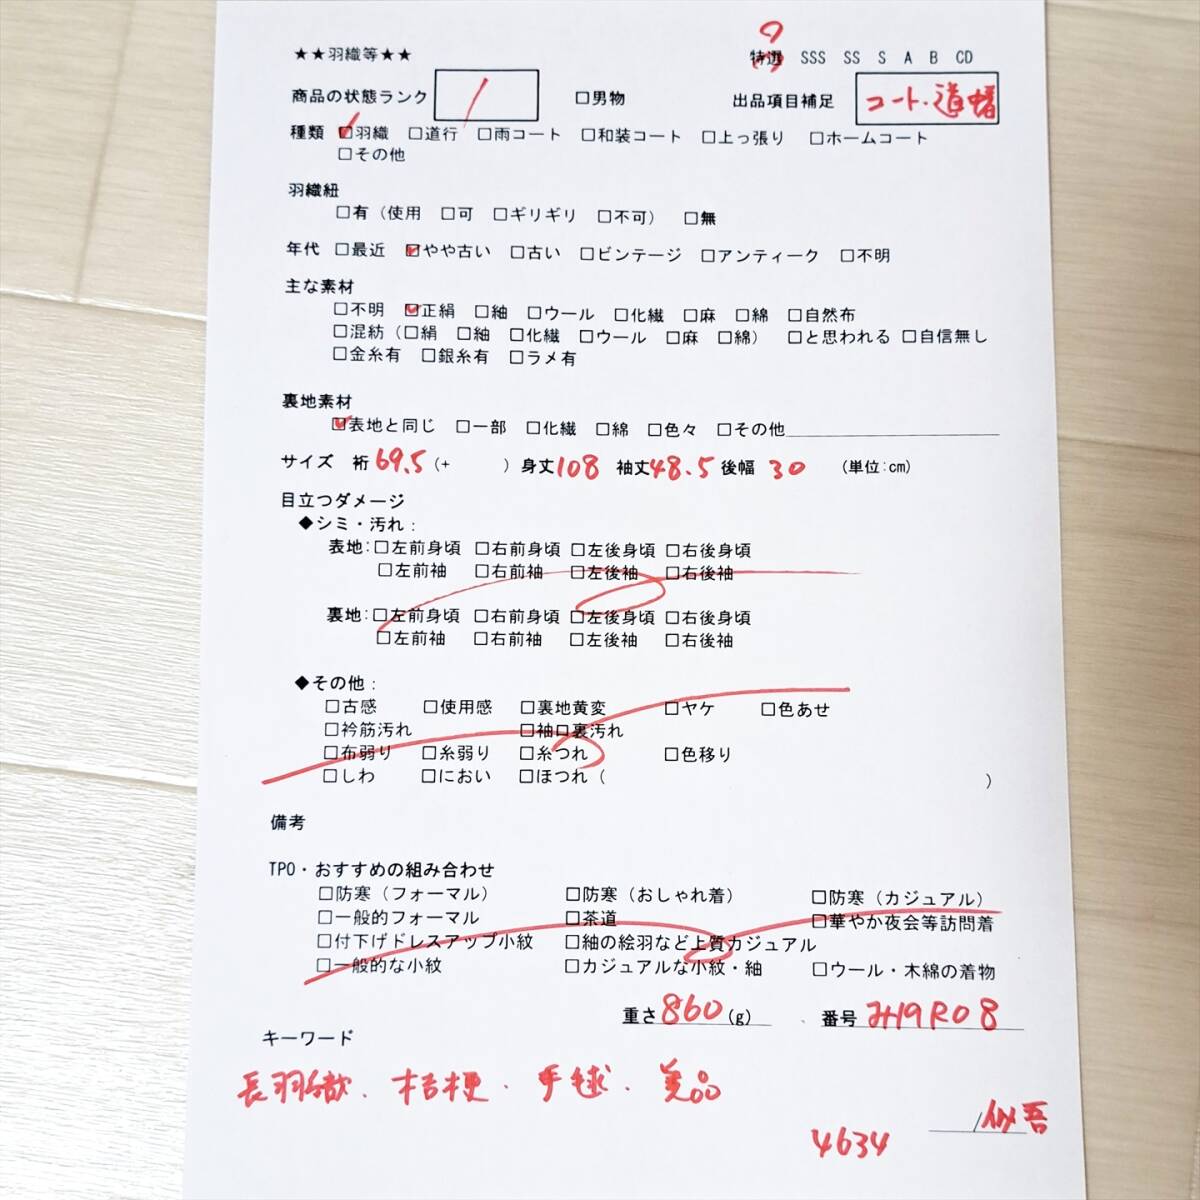 ★★羽織等★★ 特選 SSS SS S A B CD
商品の状態ランク 1 □男物 出品項目補足 コート・道
種類 ☑羽織 □道行 □雨コート □和装コート □上っ張り □ホームコート
□その他
羽織紐
□有(使用 □可 □ギリギリ □不可) □無
年代 □最近 ☑やや古い □古い □ビンテージ □アンティーク □不明
主な素材
□不明 ☑正絹 □紬 □ウール □化繊 □麻 □綿 □自然布
□混紡(□絹 □紬 □化繊 □ウール □麻 □綿) □と思われる □自信無し
□金糸有 □銀糸有 □ラメ有
裏地素材
☑表地と同じ □一部 □化繊 □綿 □色々 □その他
サイズ 裄 69.5 (+ ) 身丈 108 袖丈 48.5 後幅 30 (単位:cm)
目立つダメージ
◆シミ・汚れ:
表地:□左前身頃 □右前身頃 □左後身頃 □右後身頃
□左前袖 □右前袖 □左後袖 □右後袖
裏地:□左前身頃 □右前身頃 □左後身頃 □右後身頃
□左前袖 □右前袖 □左後袖 □右後袖
◆その他:
□古感 □使用感 □裏地黄変 □ヤケ □色あせ
□衿筋汚れ □袖口裏汚れ
□布弱り □糸弱り □糸つれ □色移り
□しわ □におい □ほつれ( )
備考
TPO・おすすめの組み合わせ
□防寒(フォーマル) □防寒(おしゃれ着) □防寒(カジュアル)
□一般的フォーマル □茶道 □華やか夜会等訪問着
□付下げドレスアップ小紋 □紬の絵羽など上質カジュアル
□一般的な小紋 □カジュアルな小紋・紬 □ウール・木綿の着物
重さ 860 (g) 番号 み19R08
キーワード
長羽織・桔梗・手毬・美品
4634